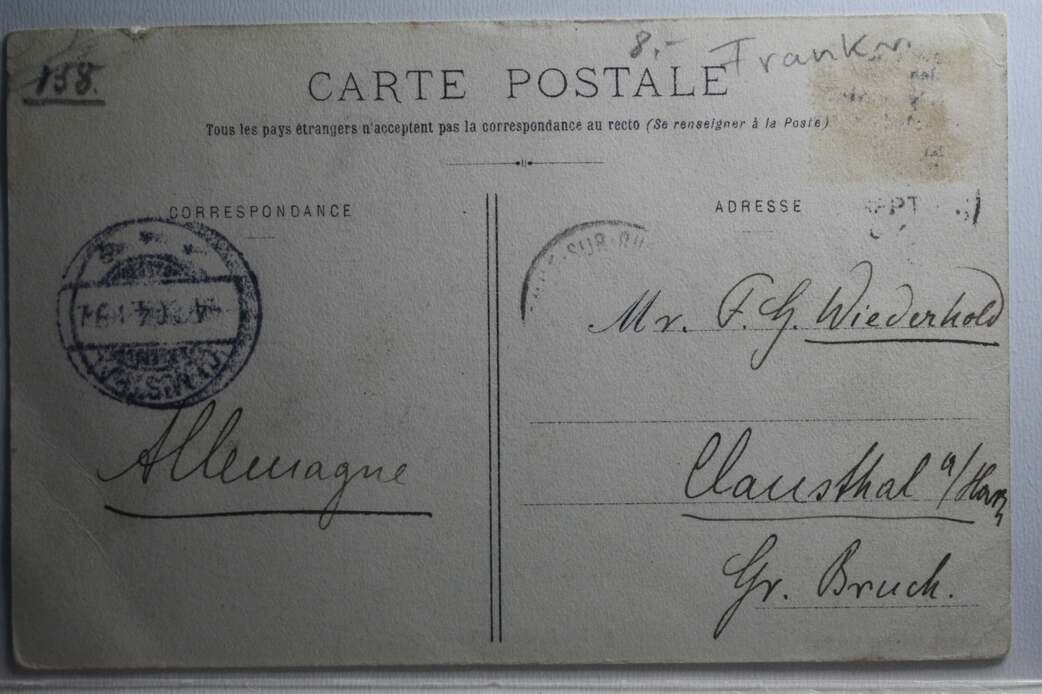 158.
8.- Frankr.
CARTE POSTALE
Tous les pays étrangers n'acceptent pas la correspondance au recto (Se renseigner à la Poste)
CORRESPONDANCE
ADRESSE
-SUR-
Mr. F. G. Wiederhold
Allemagne
Clausthal a/Harz
Gr. Bruch.